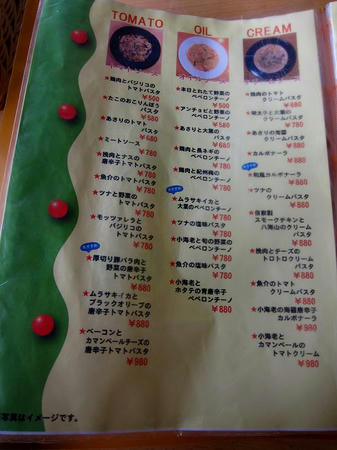 TOMATO
★鶏肉とバジリコの
トマトパスタ
¥500
★たこのおこりんぼう
パスタ
¥680
★あさりのトマト
パスタ
¥680
★ミートソース
¥780
★挽肉とナスの
唐辛子トマトパスタ
¥780
★魚介のトマトパスタ
¥780
★ツナと野菜の
トマトパスタ
¥780
★モッツァレラと
バジリコの
トマトパスタ
¥780
★厚切り豚バラ肉と
野菜の唐辛子
トマトパスタ
¥880
★ムラサキイカと
ブラックオリーブの
唐辛子トマトパスタ
¥880
★ベーコンと
カマンベールチーズの
唐辛子トマトパスタ
¥980
OIL
★本日とれたて野菜の
ペペロンチーノ
¥500
★アンチョビと野菜の
ペペロンチーノ
¥680
★あさりと大葉の
パスタ
¥780
★鶏肉と長ネギの
ペペロンチーノ
¥780
★鶏肉と紀州梅の
ペペロンチーノ
¥780
★ムラサキイカと
大葉のペペロンチーノ
¥780
★ツナの塩味パスタ
¥780
★小海老と旬の野菜の
ペペロンチーノ
¥780
★魚介の塩味パスタ
¥780
★小海老と
ホタテの青唐辛子
ペペロンチーノ
¥880
CREAM
★挽肉のトマト
クリームパスタ
¥680
★明太子と大葉の
クリームパスタ
¥780
★あさりの海苔
クリームパスタ
¥780
★カルボナーラ
¥780
★和風カルボナーラ
¥780
★ツナの
クリームパスタ
¥880
★自家製
スモークチキンと
八海山のクリーム
パスタ
¥880
★挽肉とチーズの
トロトロクリーム
パスタ
¥880
★魚介のトマト
クリームパスタ
¥880
★小海老の海苔唐辛子
カルボナーラ
¥880
★小海老と
カマンベールの
トマトクリーム
¥980
写真はイメージです。